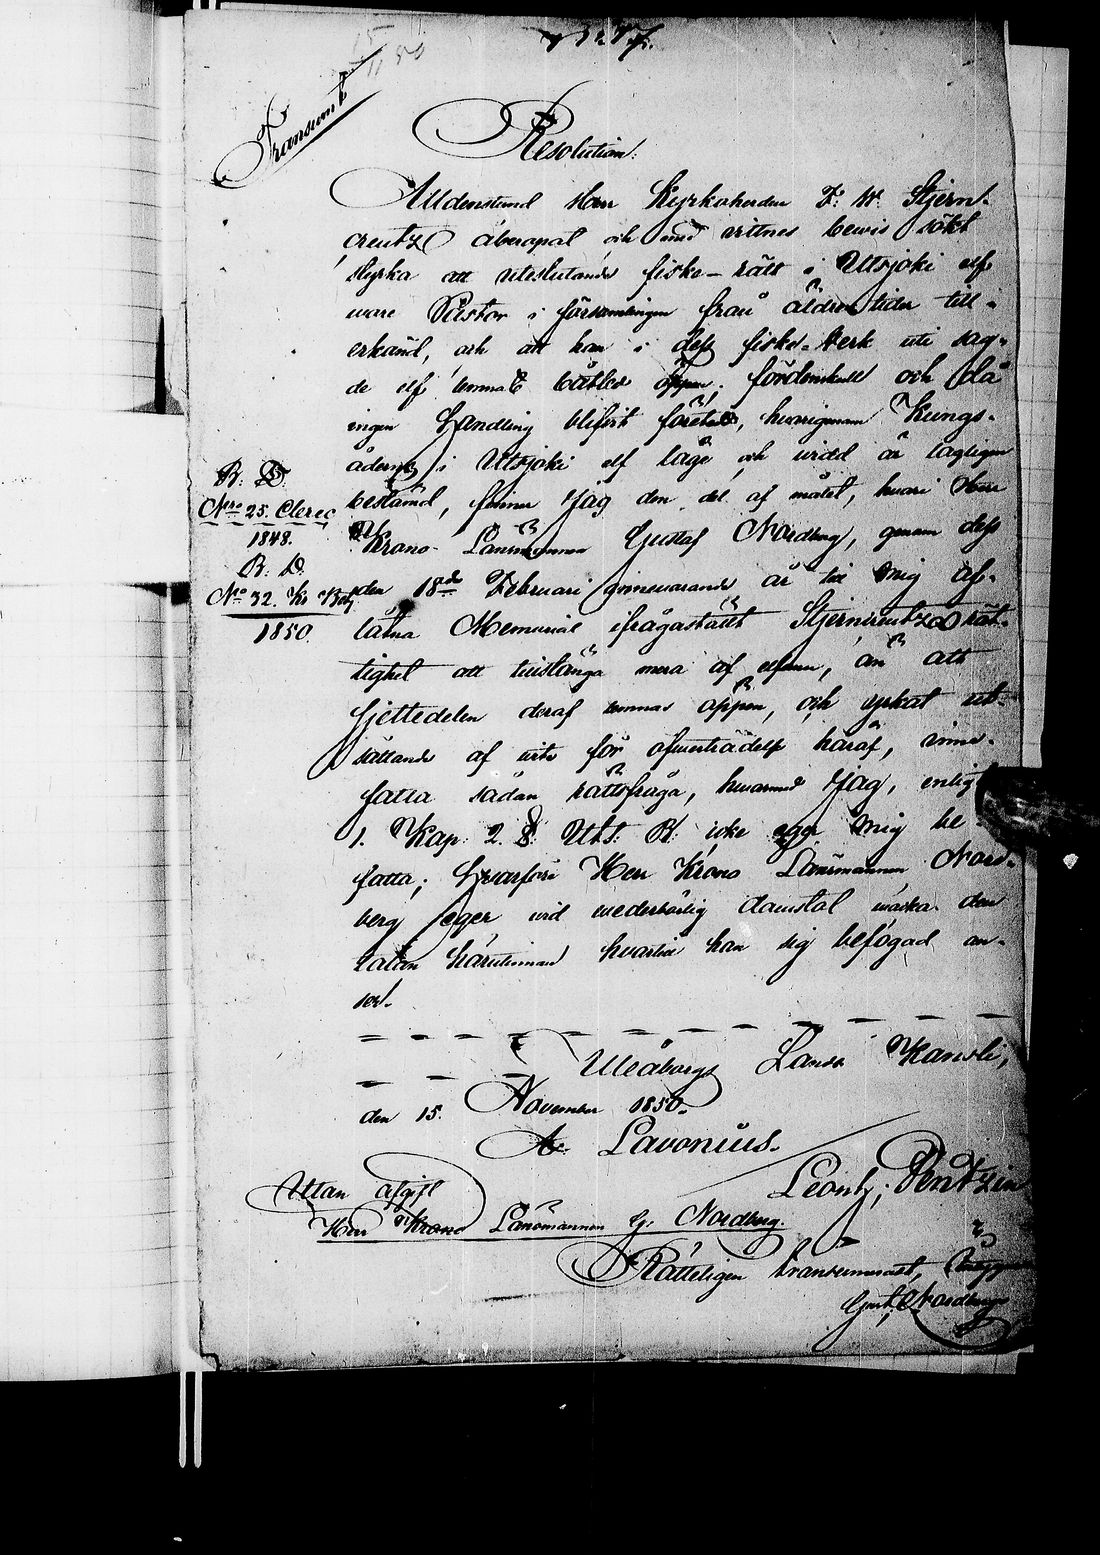 15/11 50
Transumt
Resolution:
Alldenstund Herr Kyrkoherden F. W. Stjern-
creutz åberopat, och med vittnes bewis sökt
styrka att uteslutande fiske-rätt i Utsjoki elf
ware Pastor i församlingen från äldre tider till-
erkänd, och att han i dess fiske-verk uti sag-
de elf lemnat båtled öppen; fördenskull och då
ingen Handling blifvit företedd, hvarigenom Kungs-
ådern i Utsjoki elf läge och vidd är lagligen
bestämd, finner Jag den del af målet, hvari Herr
Krono Länsmannen Gustaf Nordberg, genom dess
den 18de Februari innevarande år till mig af-
låtna Memorial ifrågastält Stjerncreutz rät-
tighet att tillstänga mera af elfven, än att
sjettedelen deraf lemnas öppen, och yrkat ut-
sättande af vite för öfverträdelse häraf, inne-
fatta sådan rättsfråga, hwarmed Jag, enligt
1. Kap. 2. §. Uts. B. icke eger mig be-
fatta; Hvarföre Herr Krono Länsmannen Nord-
berg eger vid vederbörlig domstol väcka den
talan härutinnan hvartill han sig befogad an-
ser.
Uleåborgs Lands Kansli,
den 15. November 1850.
A. Lavonius.
Leont;
Utan afgift
Herr Krono Länsmannen G. Nordberg.
Rätteligen transumerat,
Gust. Nordberg
B. D.
Nro 25. Clerec
1848.
B. D.
No 32. Kr Bet
1850.